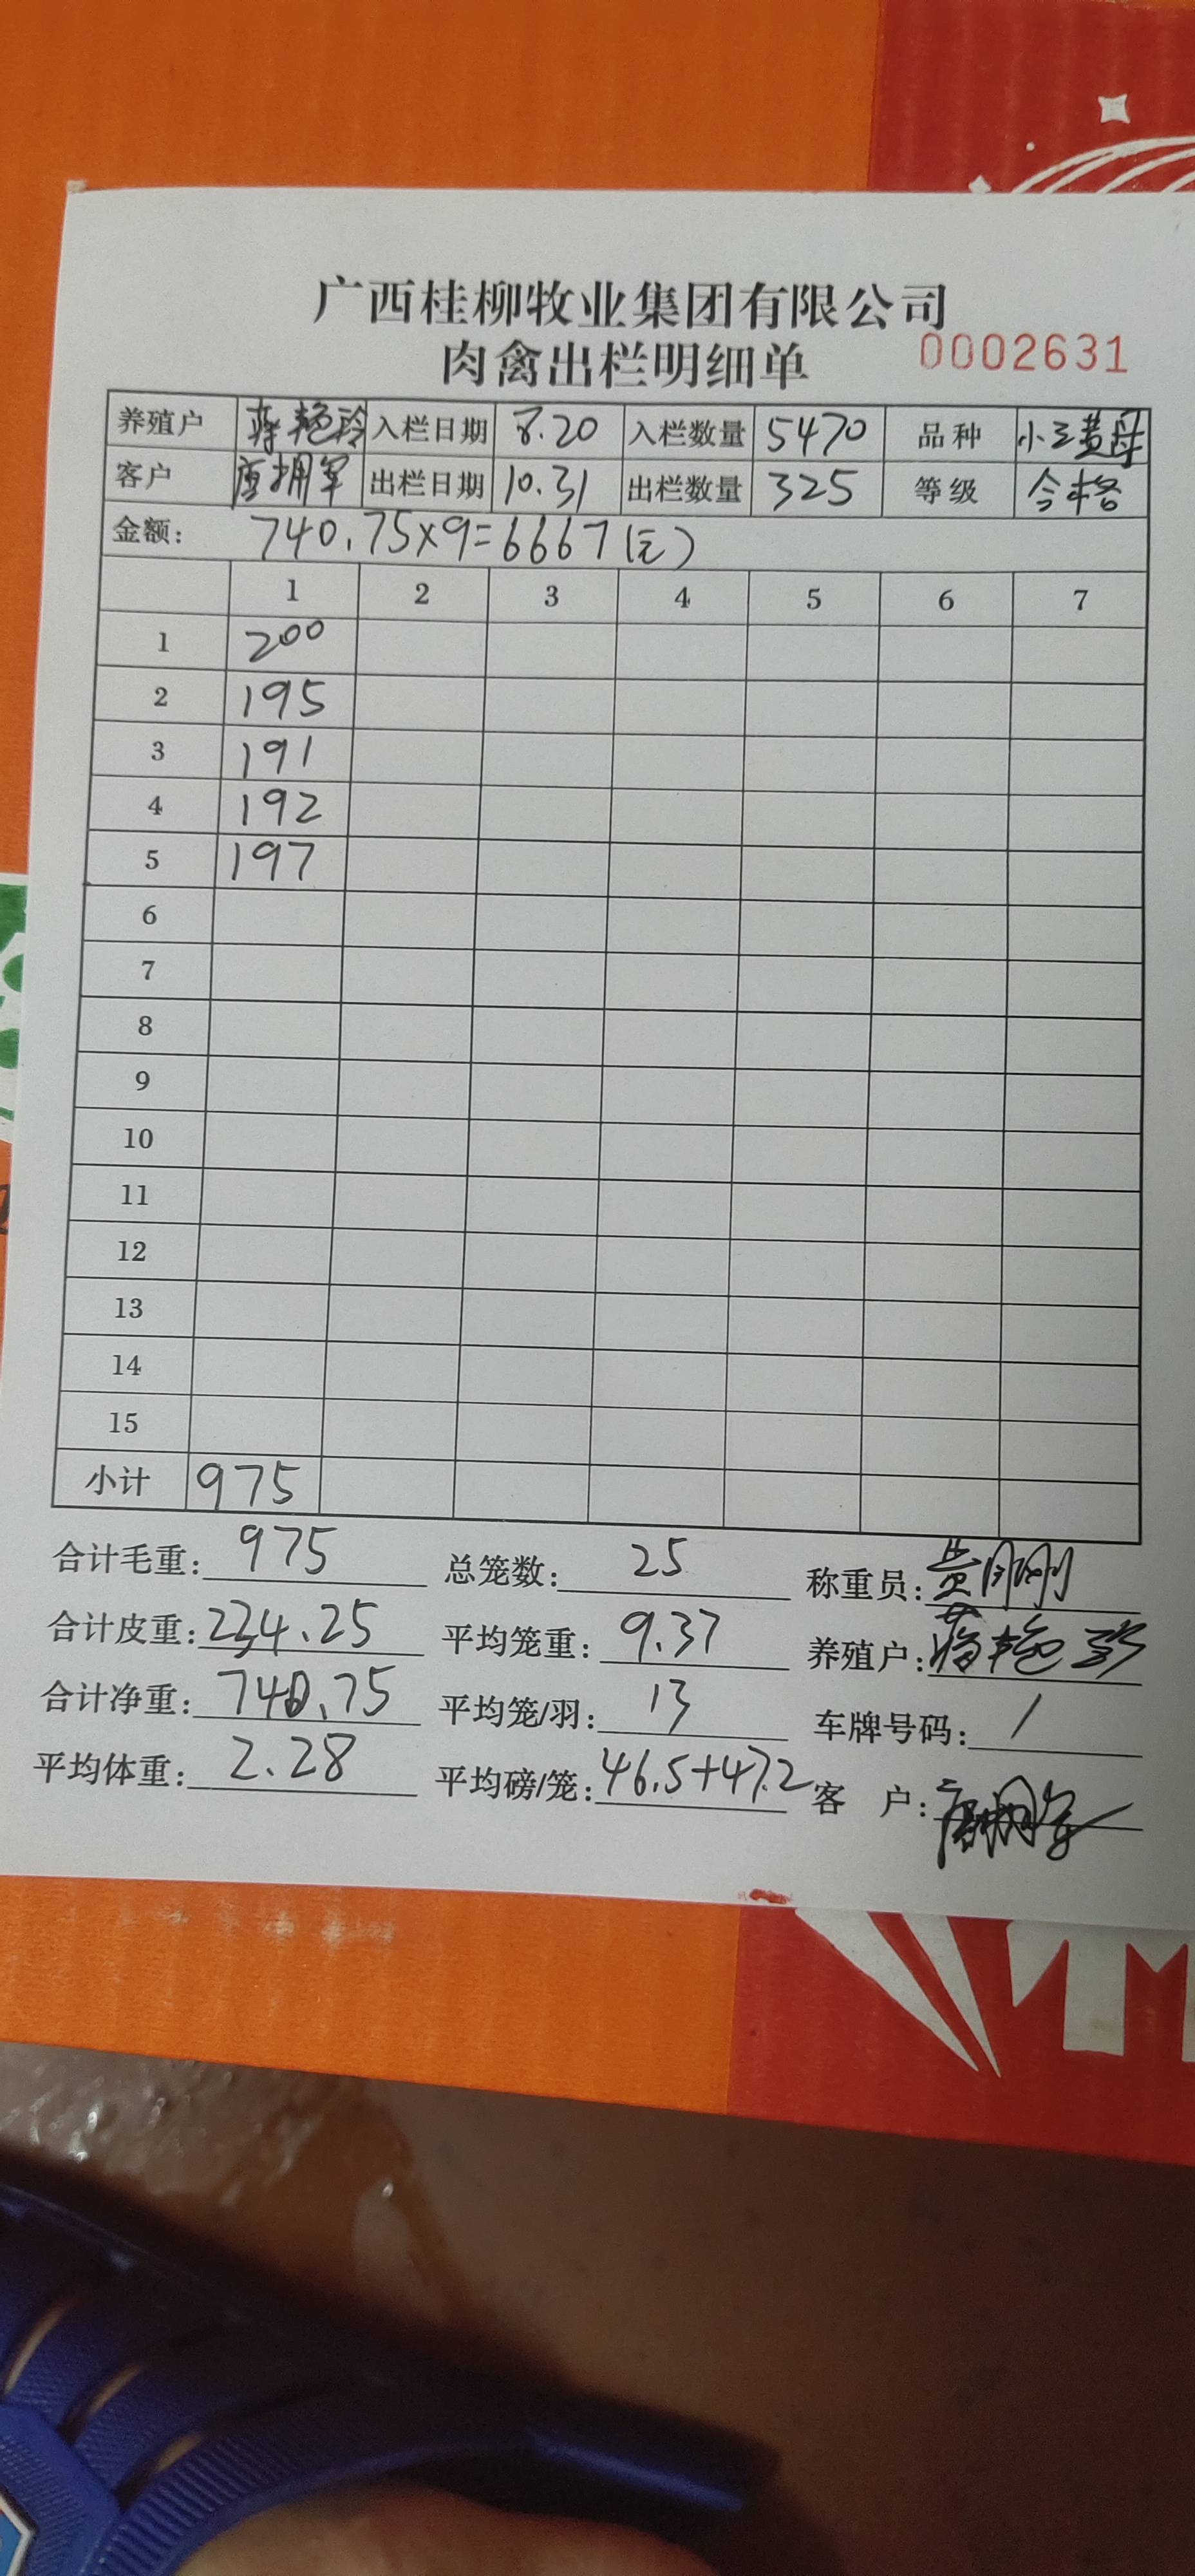 广西桂柳牧业集团有限公司
肉禽出栏明细单 0002631
养殖户 蒋艳玲 入栏日期 8.20 入栏数量 5470 品种 小三黄母
客户 唐拥军 出栏日期 10.31 出栏数量 325 等级 合格
金额: 740.75×9=6667(元)
1 2 3 4 5 6 7
1 200
2 195
3 191
4 192
5 197
6
7
8
9
10
11
12
13
14
15
小计 975
合计毛重: 975 总笼数: 25 称重员: 黄刚刚
合计皮重: 234.25 平均笼重: 9.37 养殖户: 蒋艳玲
合计净重: 740.75 平均笼/羽: 13 车牌号码: /
平均体重: 2.28 平均磅/笼: 46.5+47.2 客 户: 唐拥军